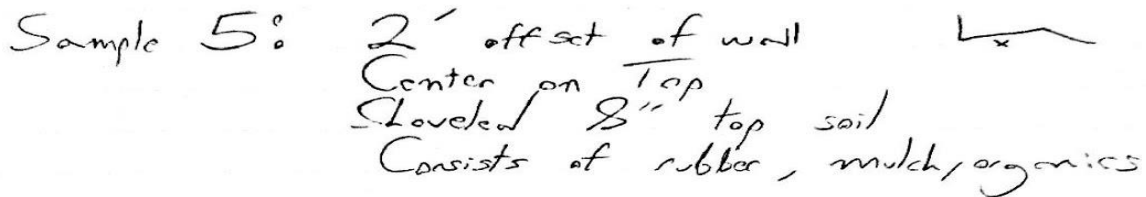 Sample 5: 2' offset of wall
Center on Top
Shoveled 8" top soil
Consists of rubber, mulch, organics